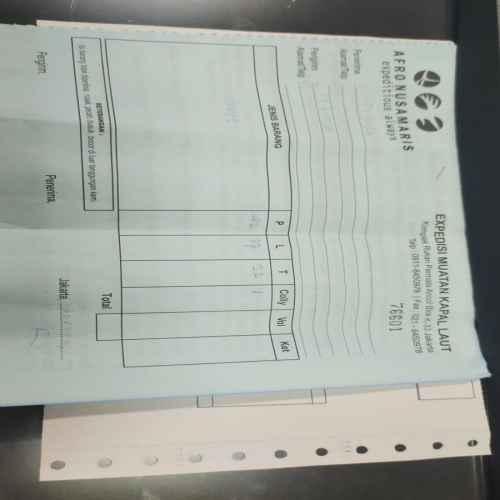 AFRO NUSAMARIS
expeditious always
EXPEDISI MUATAN KAPAL LAUT
Komplek Rukan Permata Ancol Blok K-33 Jakarta
Telp : 0811-8450978 | Fax : 021 - 6450978
76601
Penerima
Alamat/Telp
Pengirim
Alamat/Telp
JENIS BARANG P L T Colly Vol Ket
42 37 22 1
Total
KETERANGAN :
Isi barang tidak diperiksa rusak, pecah, busuk, bocor di luar tanggungan kami.
Jakarta,
Pengirim, Penerima,